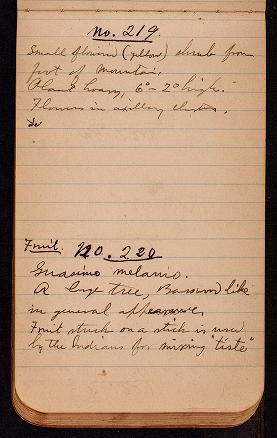 No. 219.
Small flowered (yellow) shrub from
foot of mountain.
Plant hoary, 6°-20° high.
Flowers in axillary clusters.
Fruit. No. 220
Guasimo melanio.
A large tree, Basswood like
in general appearance.
Fruit stuck on a stick is used
by the Indians for mixing "tiste"